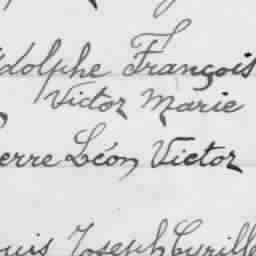 Adolphe François
Victor Marie
Pierre Léon Victor
Louis Joseph Cyrille